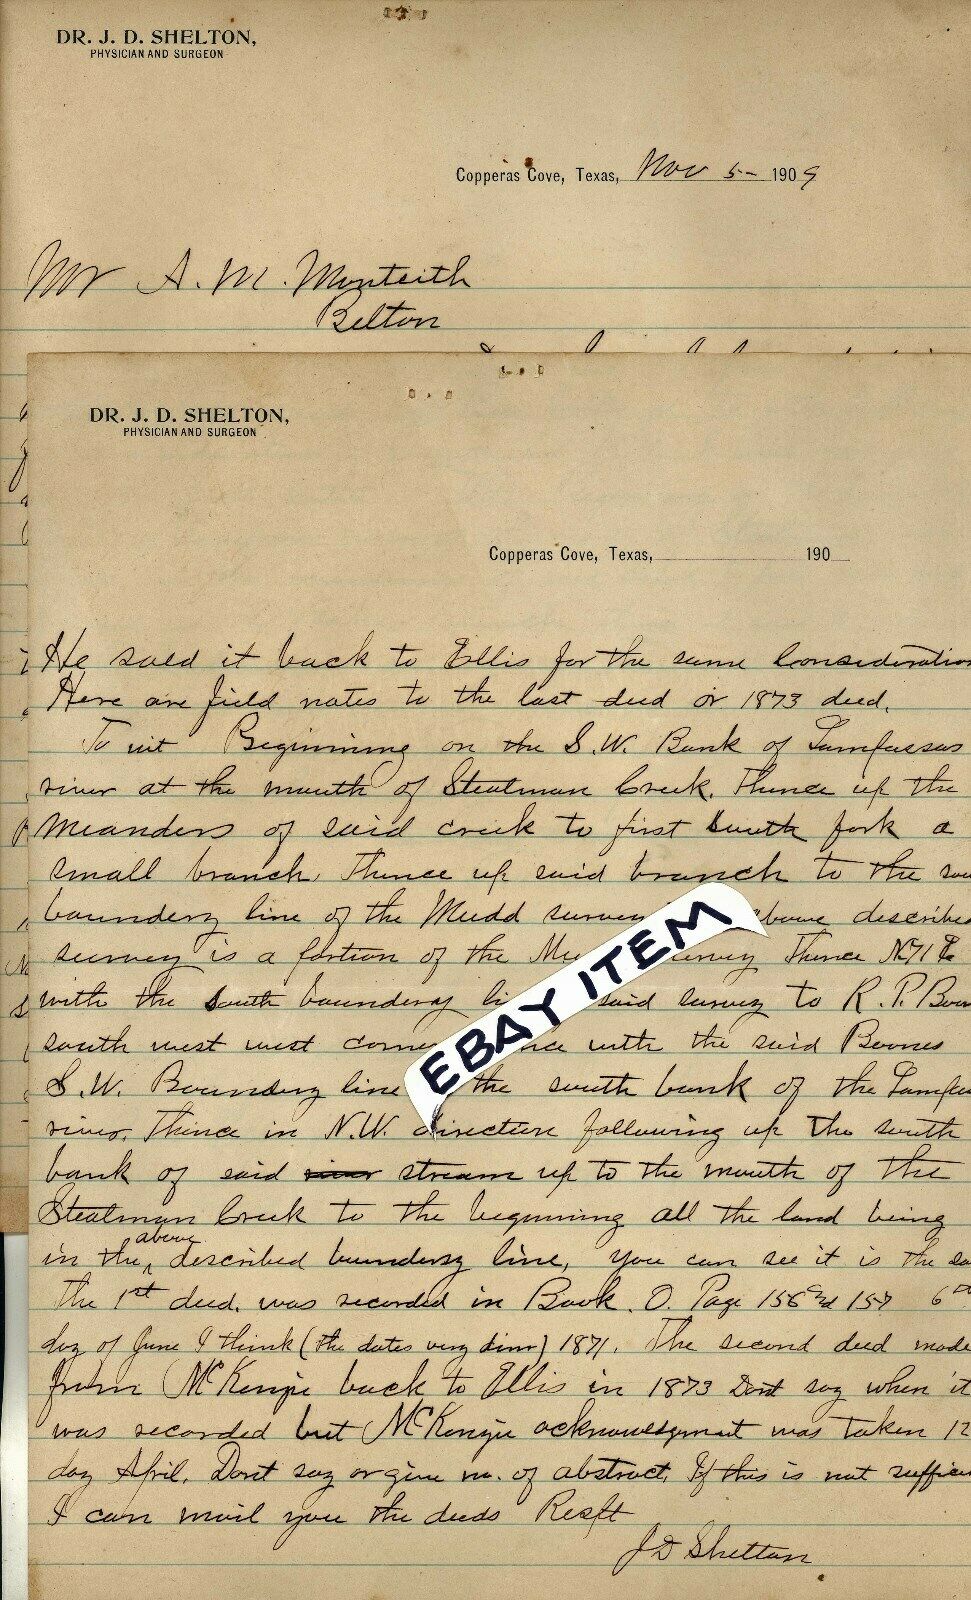 DR. J. D. SHELTON,
PHYSICIAN AND SURGEON
Copperas Cove, Texas, Nov 5- 1909
Mr A. M. Monteith
Belton
DR. J. D. SHELTON,
PHYSICIAN AND SURGEON
Copperas Cove, Texas, 190
He sold it back to Ellis for the same Consideration
Here are field notes to the last deed or 1873 deed.
To wit Beginning on the S.W. Bank of Lampassas
river at the mouth of Stealman Creek. Thence up the
Meanders of said creek to first South fork a
small branch, Thence up said branch to the
boundery line of the Mudd survey above described
survey is a portion of the Thence N71 E
with the South boundery said survey to R. P.
south west west with the said Boones
S.W. Boundery line the south bank of the
river. Thence in N.W. direction following up the south
bank of said river stream up to the mouth of the
Stealman Creek to the beginning all the land being
in the above described boundery line, you can see it is the
the 1st deed. was recorded in Book. O. Page 156 and 157 6
day of June I think (the dates very dim) 1871. The second deed made
from McKenzie back to Ellis in 1873 Dont say when it
was recorded but McKenzie acknowledgment was taken 12
day April. Dont say or give no. of abstract. If this is not
I can mail you the deeds Resft
J D Shelton
EBAY ITEM